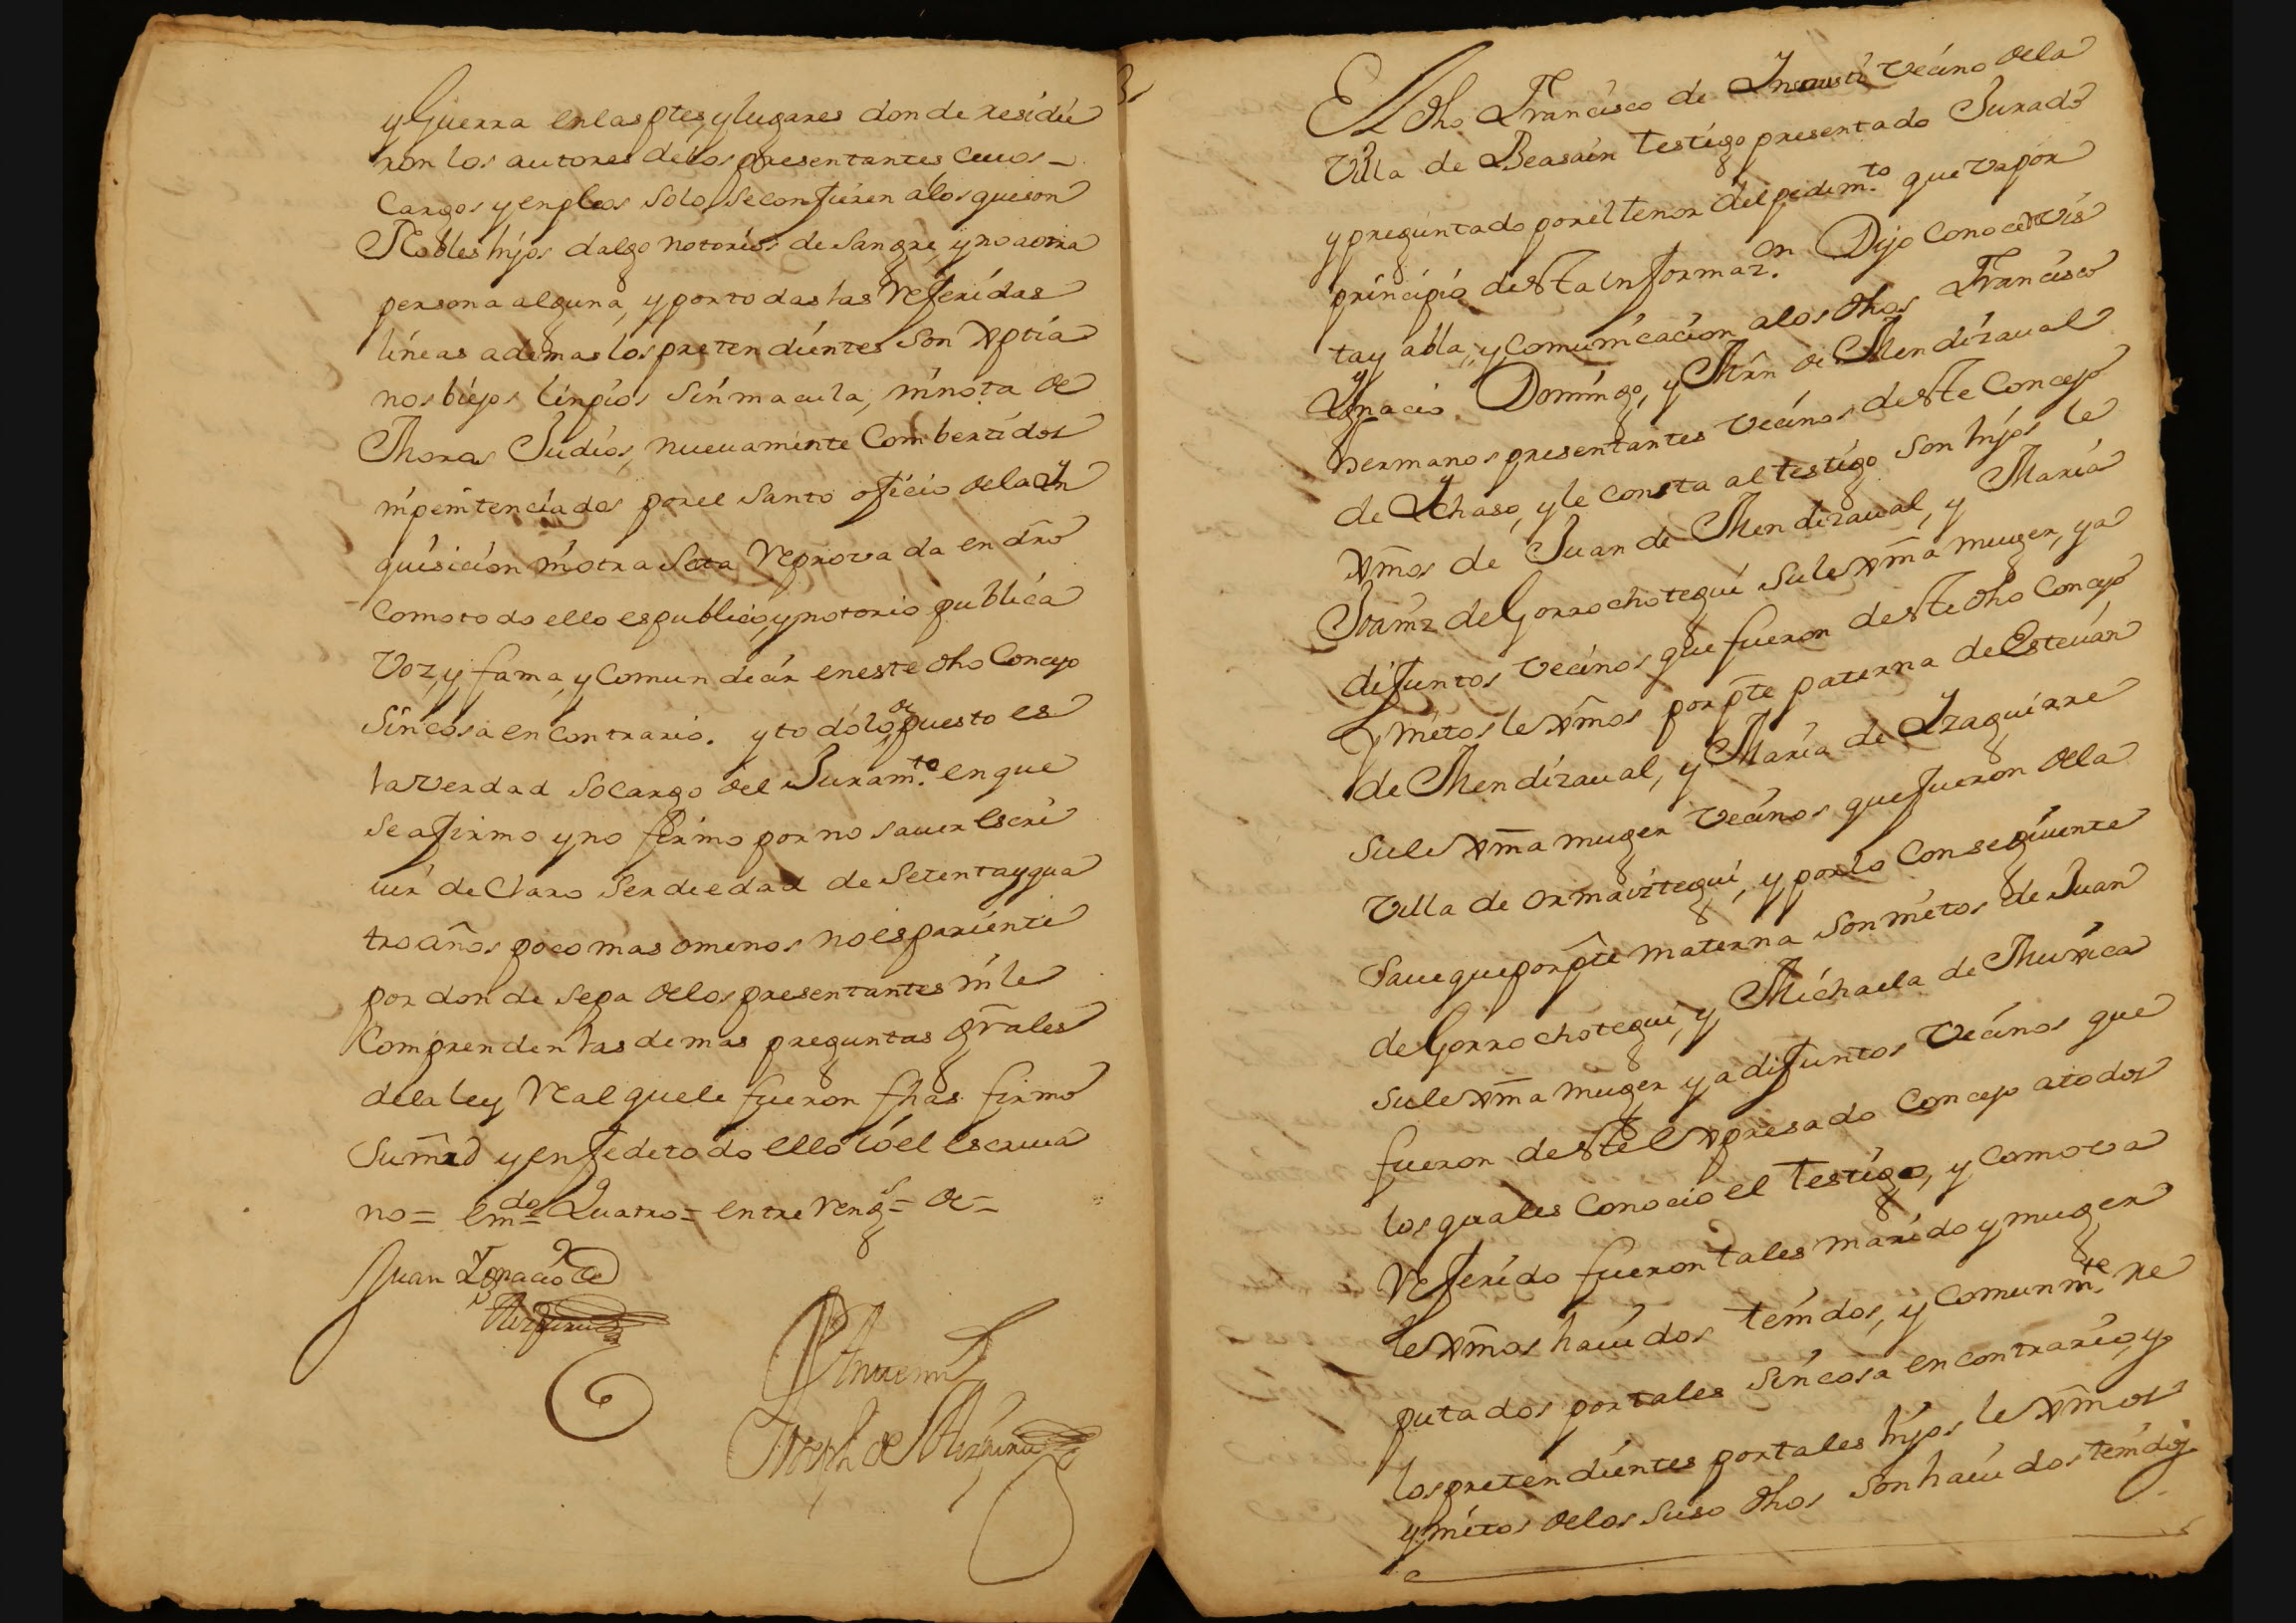 y Guerra en las ptes, y lugares donde residie
ron los autores de los presentantes cuios
Cargos y enpleos solo se confieren a los que son
Nobles hijos dalgo notorios de sangre, y no a otra
persona alguna, y por todas las Referidas
lineas ademas los pretendientes son xptia
nos biejos linpios sin macula, ni nota de
Moros Judios, nueuamente Combertidos
ni penitenciados por el santo oficio de la Yn
quisicion ni otra Seta Reprovada en dro
como todo ello es publico, y notorio publica
Voz, y fama, y Comun decir en este dho Concejo
sin cosa en contrario. y todo lo de puesto es
la verdad so cargo del Juramto. en que
se afirmo y no firmo por no sauer escri
uir declaro ser de edad de setenta y qua
tro años poco mas o menos no es pariente
por donde sepa de los presentantes ni le
Comprenden las demas preguntas grales
de la ley Real que le fueron fhas firmo
su mrd y en fe de todo ello io el escriua
no = emdo = Quatro = entre Rengs = de =
Juan Ygnacio de
Ante mi
Joseph de
El dho Francisco de Vecino de la
Villa de Beasain testigo presentado Jurado
y preguntado por el tenor del pedimto. que va por
principio desta informazon. Dijo Conoce de vis
ta y abla, y Comunicacion a los dhos Francisco
Ygnacio Domingo, y Mrn de Mendizaual
hermanos presentantes Vecinos deste Concejo
de Ychaso, y le consta al testigo son hijos le
xmos de Juan de Mendizaual, y Maria
Joaniz de Gorrochotegui su lexma muger, ya
difuntos vecinos que fueron deste dho Concejo
y nietos lexmos por pte paterna de Esteuan
de Mendizaual, y Maria de Yzaguirre
su lexma muger Vecinos que fueron de la
Villa de ormaiztegui, y por lo Conseguiente
saue que por pte materna son nietos de Juan
de Gorrochotegui, y Michaela de Muxica
su lexma muger ya difuntos Vecinos que
fueron deste expresado Concejo a todos
los quales Conocio el testigo, y como va
Referido fueron tales marido y muger
lexmos hauidos tenidos, y Comunmte. re
putados por tales sin cosa en contrario, y
los pretendientes por tales hijos lexmos
y nietos de los suso dhos son hauidos tenidos